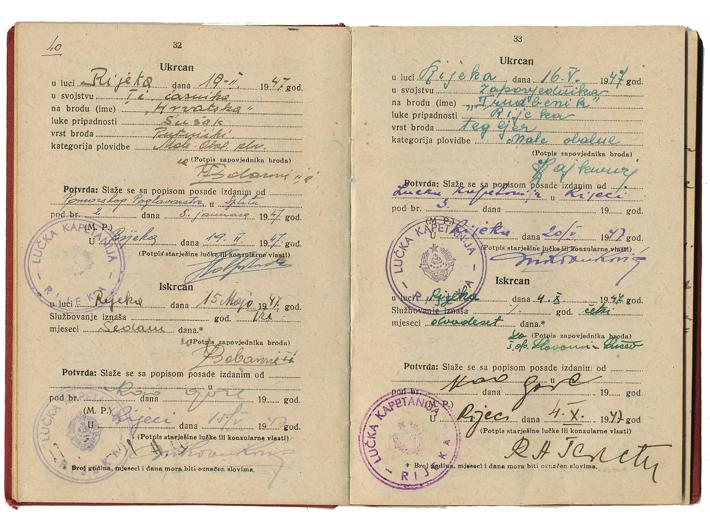 10
32
Ukrcan
u luci Rijeka dana 19-II 1947 god.
u svojstvu I č. časnika
na brodu (ime) „Hrvatska"
luke pripadnosti Sušak
vrst broda Putnički
kategorija plovidbe Mal. Obal. plv.
(Potpis zapovjednika broda)
Potvrda: Slaže se sa popisom posade izdanim od
Pomorskog Poglavarstva Split
pod br. 2 dana 5. januara 1947 god.
(M. P.)
U Rijeka 19. II 1947. god.
(Potpis starješine lučke ili konzularne vlasti)
LUČKA KAPETANIJA
RIJEKA
Iskrcan
u luci Rijeka dana 15 Maja 1947. god.
Službovanje iznaša god. tri
mjeseci Sedam dana.*
(Potpis zapovjednika broda)
Potvrda: Slaže se sa popisom posade izdanim od
kao gore
pod br. dana 19 god.
(M. P.)
U Rijeci 15/V 1947 god.
(Potpis starješine lučke ili konzularne vlasti)
LUČKA KAPETANIJA
RIJEKA
* Broj godina, mjeseci i dana mora biti označen slovima.
33
Ukrcan
u luci Rijeka dana 16.V. 1947 god.
u svojstvu Zapovjednika
na brodu (ime) „Trudbenik"
luke pripadnosti Rijeka
vrst broda tegljer
kategorija plovidbe Male obalne
(Potpis zapovjednika broda)
Potvrda: Slaže se sa popisom posade izdanim od
Lučke kapetanije Rijeci
pod br. 3. dana 19 god.
(M. P.)
U Rijeka 20/V. 1947 god.
(Potpis starješine lučke ili konzularne vlasti)
LUČKA KAPETANIJA
RIJEKA
Iskrcan
u luci Rijeka dana 4.X. 1947 god.
Službovanje iznaša /. god. četri
mjeseci dvadeset dana.*
(Potpis zapovjednika broda)
Potvrda: Slaže se sa popisom posade izdanim od
kao gore
pod br. dana 19 god.
(M. P.)
U Rijeci 4.X. 1947 god.
(Potpis starješine lučke ili konzularne vlasti)
LUČKA KAPETANIJA
RIJEKA
* Broj godina, mjeseci i dana mora biti označen slovima.